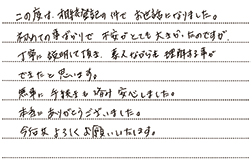 この度は、相続登記の件でお世話になりました。
初めての事ばかりで不安がとても大きかったのですが、
丁寧に説明して頂き、素人ながらも理解する事が
できたと思います。
無事に手続きも済み安心しました。
本当にありがとうございました。
今後共よろしくお願いいたします。